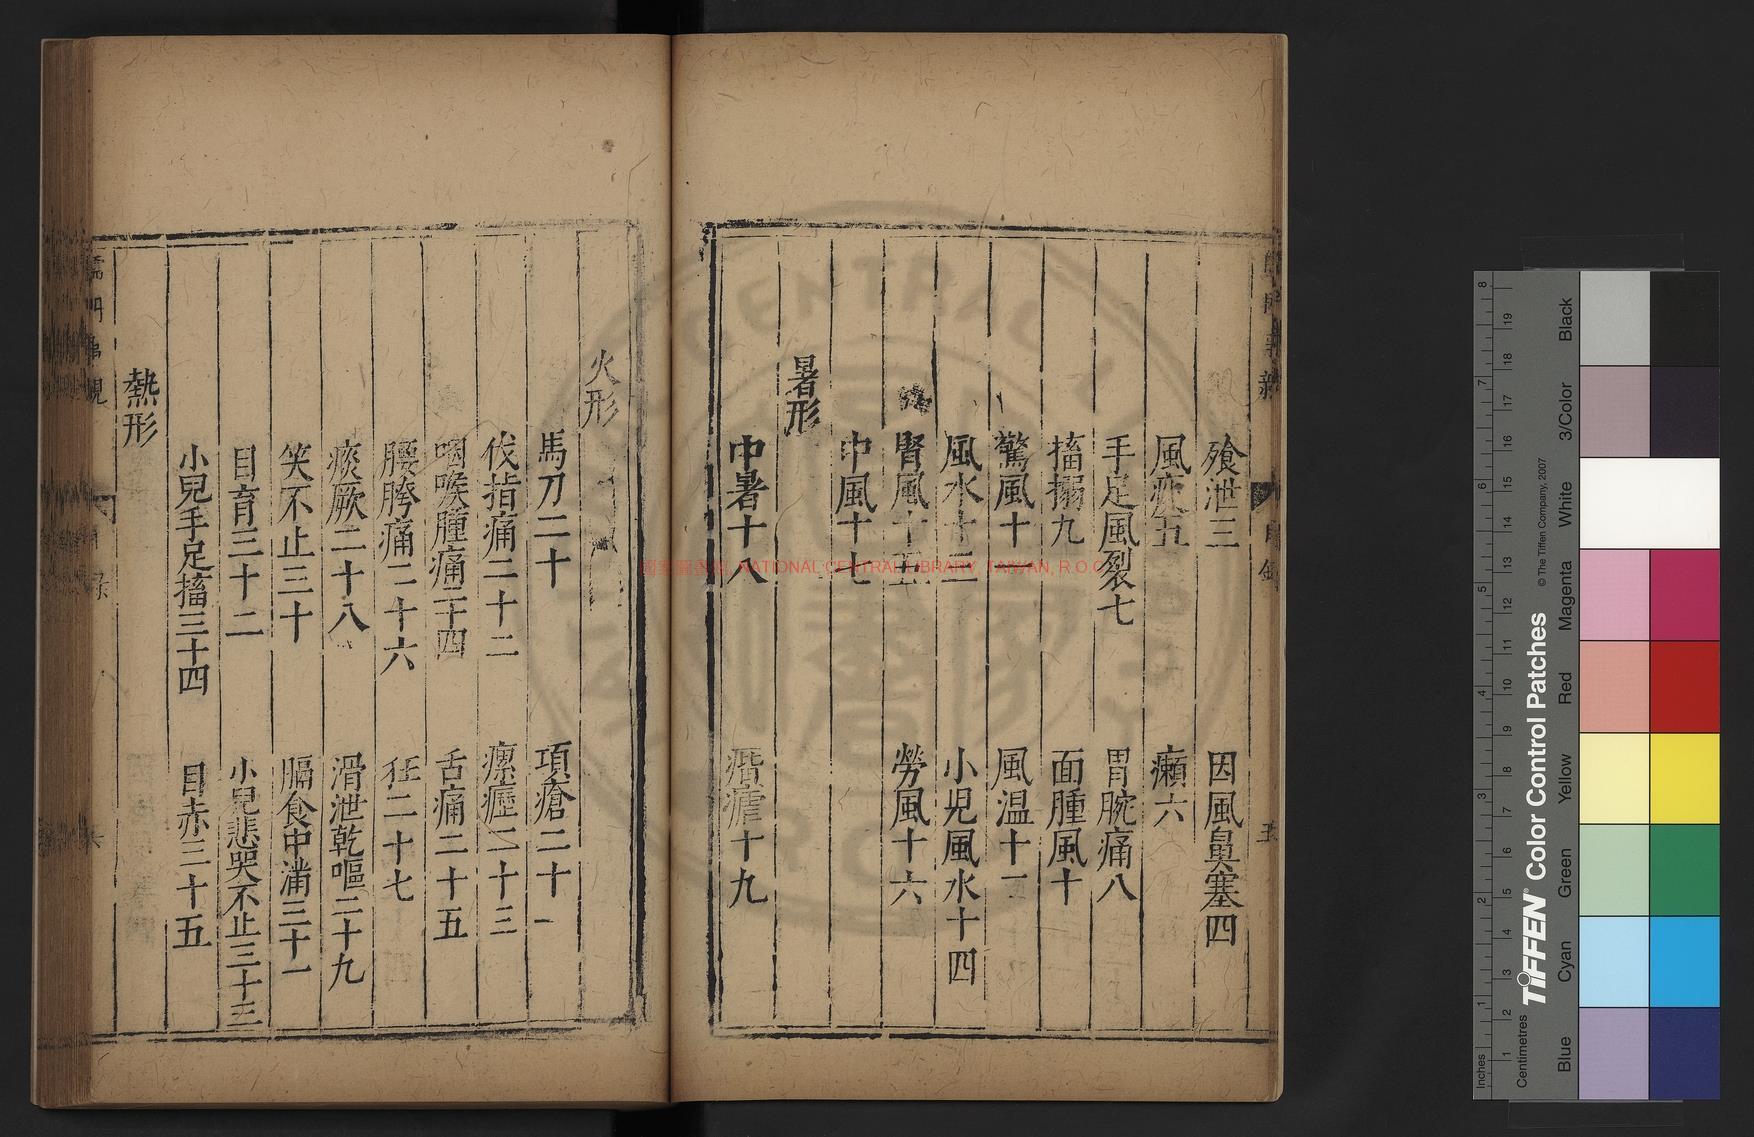 飧泄三　因風鼻塞四
風痰五　癩六
手足風裂七　胃脘痛八
搐搦九　面腫風十
驚風十　風温十一
風水十三　小児風水十四
腎風十五　勞風十六
中風十七
暑形
中暑十八　痎瘧十九
火形
馬刀二十　項瘡二十一
伐指痛二十二　瘰癧二十三
咽喉腫痛二十四　舌痛二十五
腰胯痛二十六　狂二十七
痰厥二十八　滑泄乾嘔二十九
笑不止三十　膈食中滿三十一
目盲三十二　小兒悲哭不止三十三
小兒手足搐三十四　目赤三十五
熱形
儒門事親
目录
六
國家圖書館, NATIONAL CENTRAL LIBRARY, TAIWAN, R.O.C
TIFFEN® Color Control Patches
© The Tiffen Company, 2007
Inches
Centimetres
Blue
Cyan
Green
Yellow
Red
Magenta
White
3/Color
Black